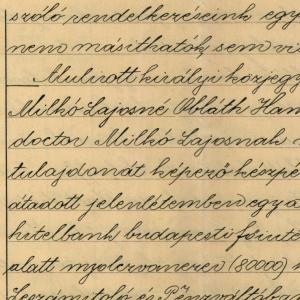 szóló rendelkezéseink egy
nem másíthatók sem vis
Alulirott királyi közjegy
Milkó Lajosné Obláth Han
doctor Milkó Lajosnak
tulajdonát képező készpé
átadott jelenlétemben egy a
hitelbank budapesti főinté
alatt nyolcvanezer (80000)
Leszámitoló és Pénzváltóban